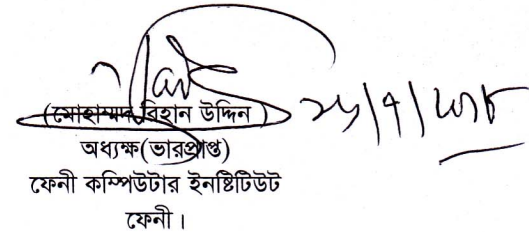 (মোহাম্মদ রিহান উদ্দিন )
অধ্যক্ষ(ভারপ্রাপ্ত)
ফেনী কম্পিউটার ইনষ্টিটিউট
ফেনী।